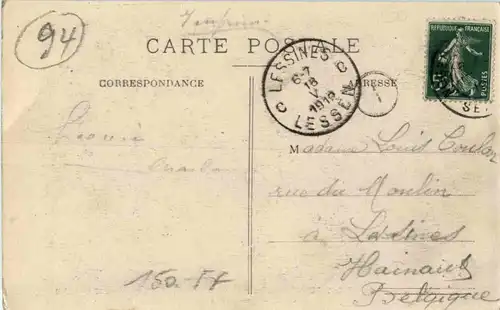 94
CARTE POSTALE
CORRESPONDANCE
ADRESSE
LESSINES
6-7
18
V
1919
LESSEN
C C
REPUBLIQUE FRANÇAISE
POSTES
1
Léonie
Madame Louis
rue du Moulin
à Lessines
Hainaut
Belgique
150.FF